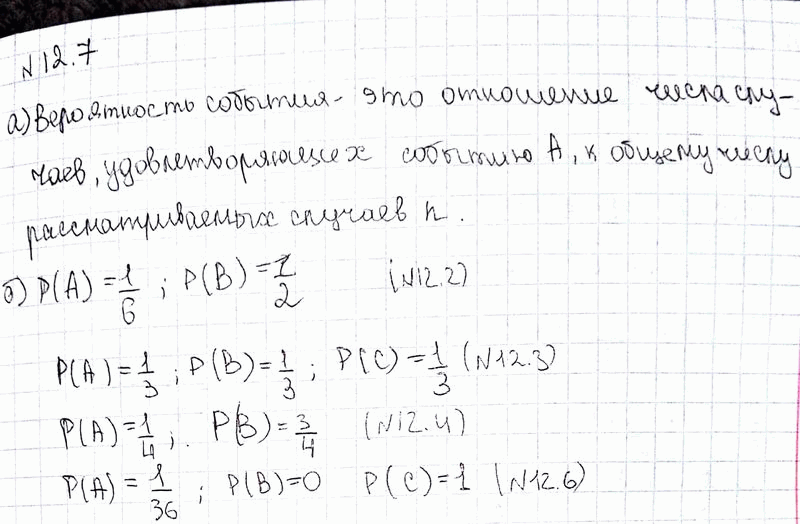 N12.7
а) Вероятность события - это отношение числа слу-
чаев, удовлетворяющих событию A, к общему числу
рассматриваемых случаев n.
б) P(A) = 1/6 ; P(B) = 1/2 (N12.2)
P(A) = 1/3 ; P(B) = 1/3 ; P(C) = 1/3 (N12.3)
P(A) = 1/4 ; P(B) = 3/4 (N12.4)
P(A) = 1/36 ; P(B) = 0 P(C) = 1 (N12.6)